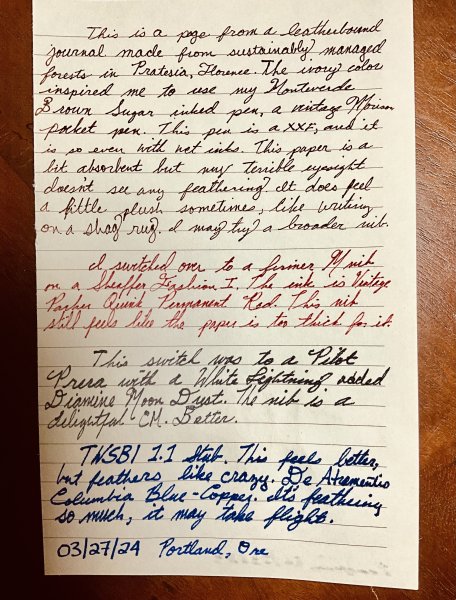 This is a page from a leatherbound
journal made from sustainably managed
forests in Pratesia, Florence. The ivory color
inspired me to use my Monteverde
Brown Sugar inked pen, a vintage Morison
pocket pen. This pen is a XXF, and it
is so even with wet inks. This paper is a
bit absorbent but my terrible eyesight
doesn't see any feathering. It does feel
a little plush sometimes, like writing
on a shag rug. I may try a broader nib.
I switched over to a firmer M nib
on a Sheaffer Fashion I. The ink is Vintage
Parker Quink Permanent Red. This nib
still feels like the paper is too thick for it.
This switch was to a Pilot
Prera with a White Lightning added
Diamine Moon Dust. The nib is a
delightful CM. Better.
TWSBI 1.1 Stub. This feels better,
but feathers like crazy. De Atramentis
Columbia Blue-Copper. It's feathering
so much, it may take flight.
03/27/24 Portland, Ore